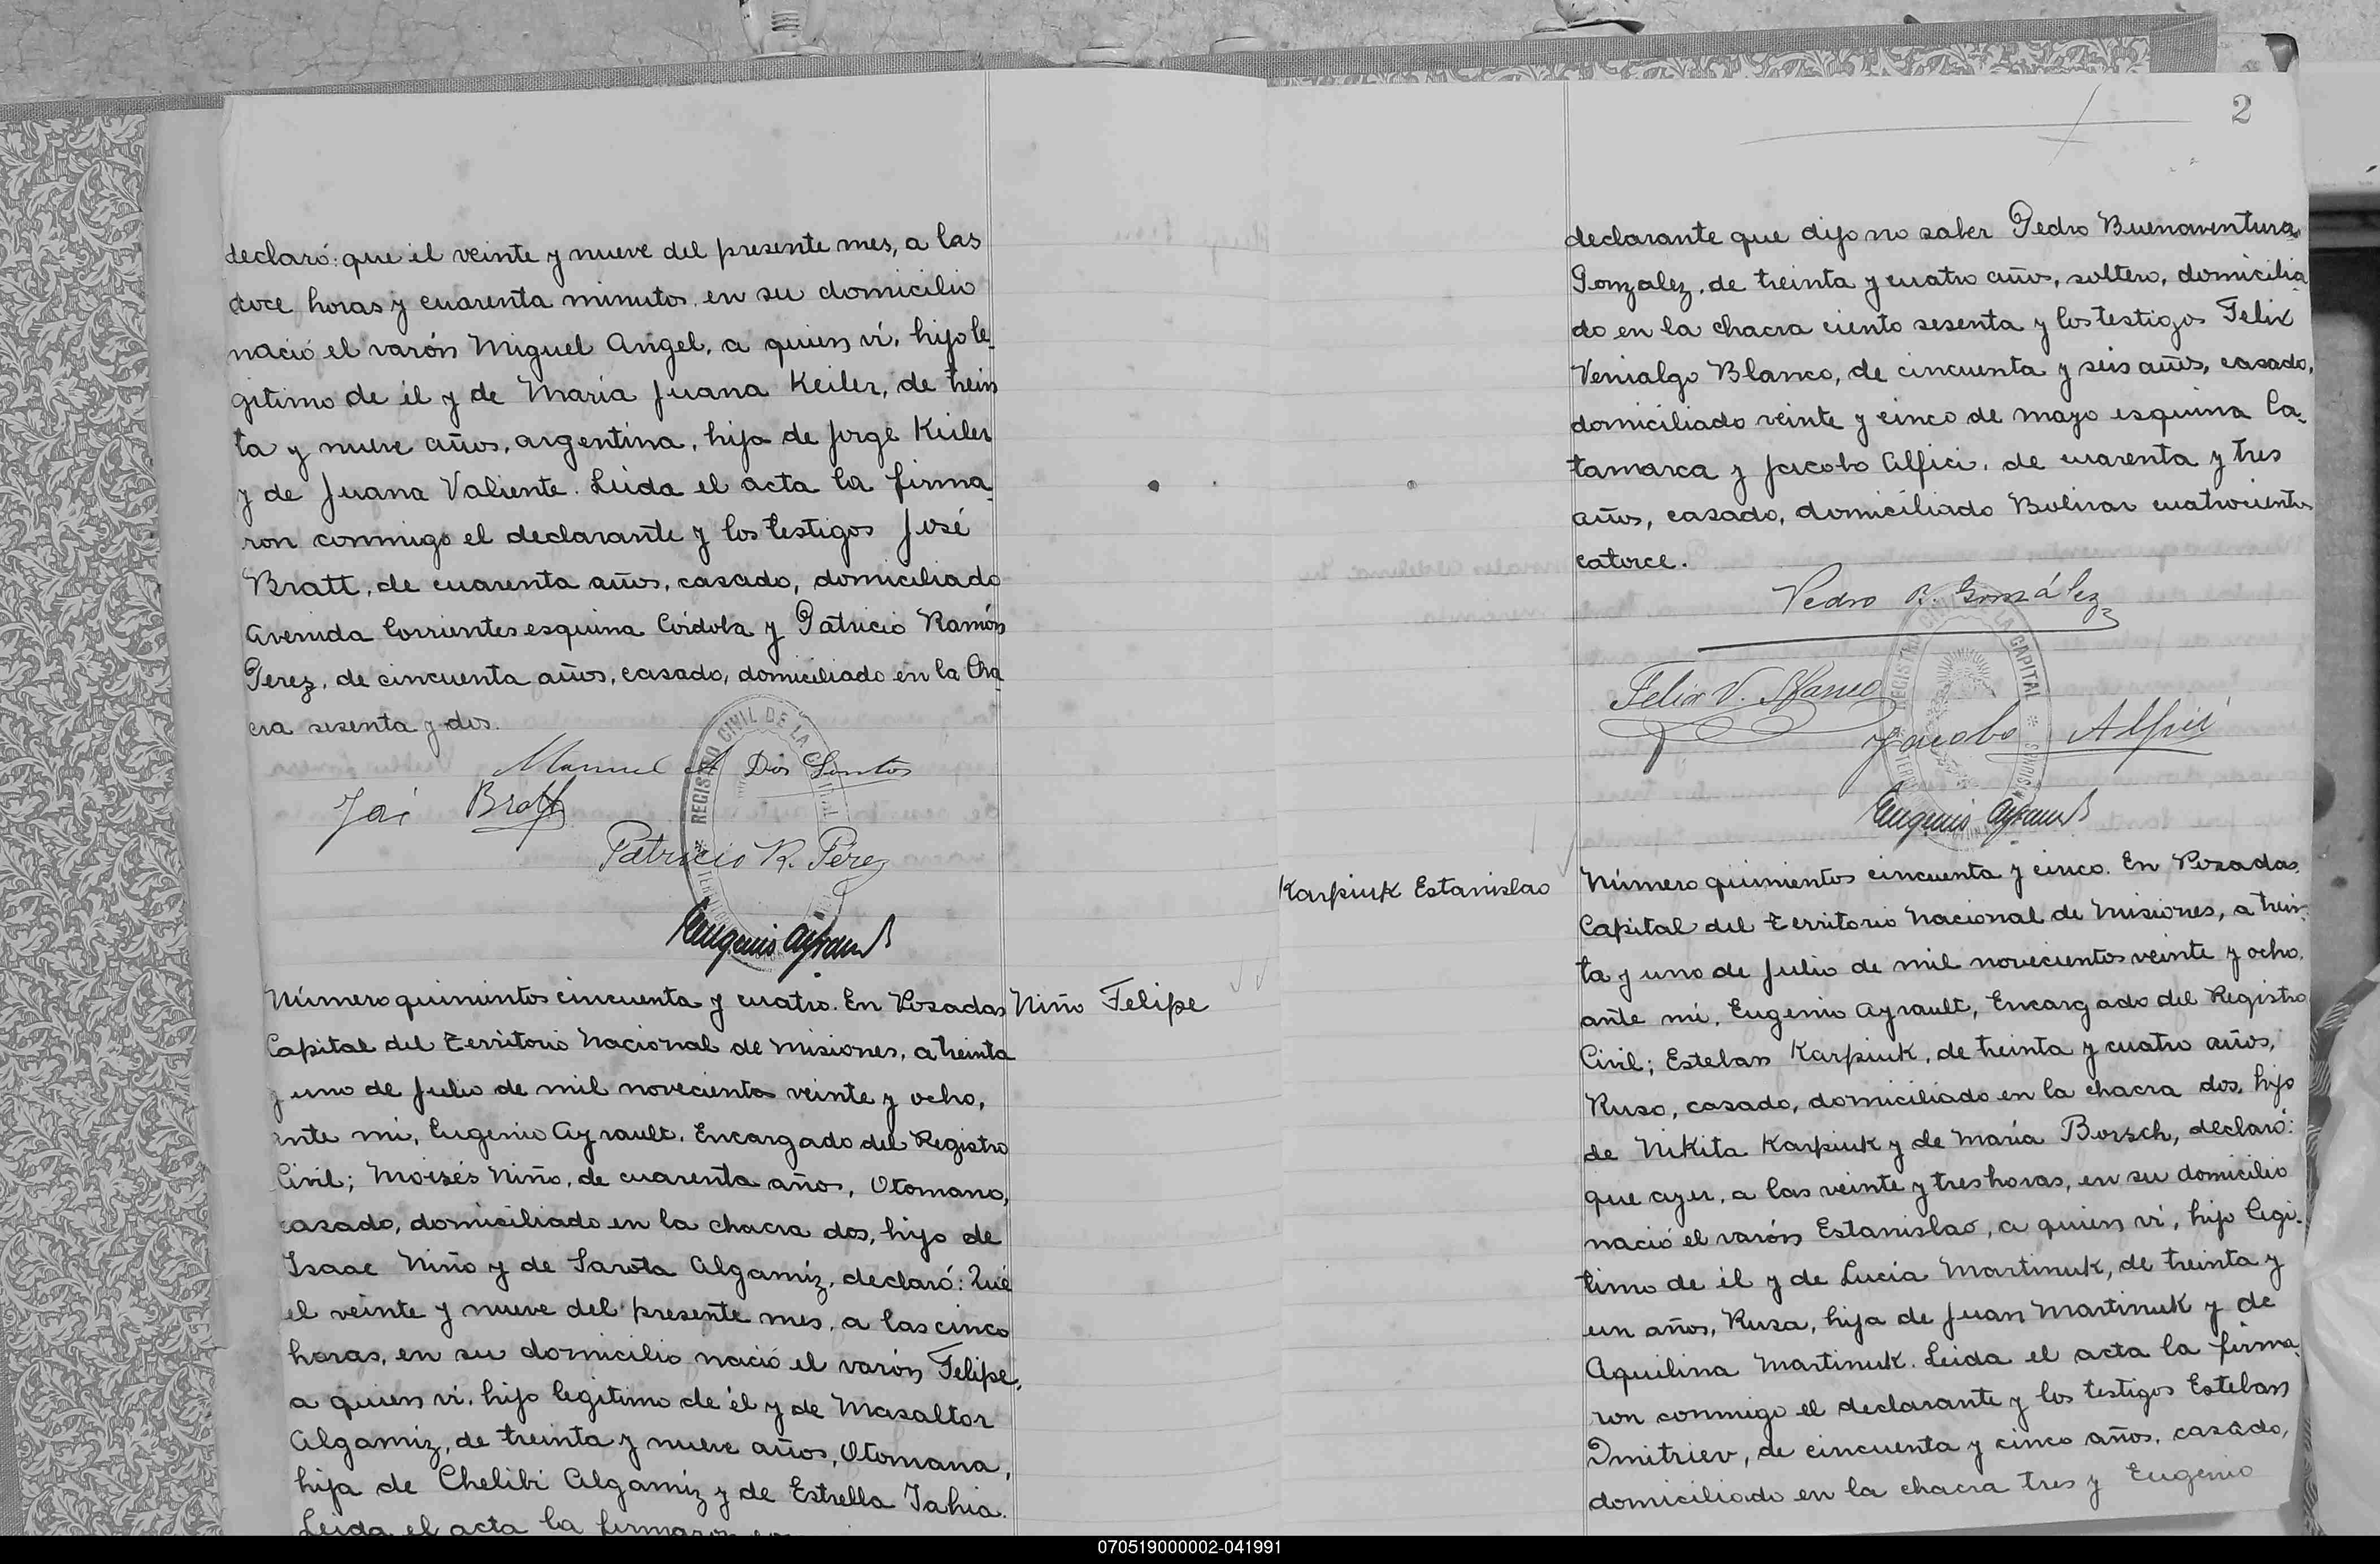 declaró: que el veinte y nueve del presente mes, a las
doce horas y cuarenta minutos, en su domicilio
nació el varón Miguel Angel, a quien vi, hijo le-
gitimo de él y de María Juana Keiler, de trein
ta y nueve años, argentina, hija de Jorge Keiler
y de Juana Valiente. Leida el acta la firma-
ron conmigo el declarante y los testigos José
Bratt, de cuarenta años, casado, domiciliado
Avenida Corrientes esquina Córdoba y Patricio Ramón
Perez, de cincuenta años, casado, domiciliado en la Cha
cra sesenta y dos.
Manuel A Dos Santos
José Bratt
Patricio R. Pérez
REGISTRO CIVIL DE LA CAPITAL
Eugenio Ayrault
Número quinientos cincuenta y cuatro. En Posadas
Niño Felipe
Capital del Territorio Nacional de Misiones, a treinta
y uno de Julio de mil novecientos veinte y ocho,
ante mi, Eugenio Ayrault, Encargado del Registro
Civil; Moisés Niño, de cuarenta años, Otomano,
casado, domiciliado en la chacra dos, hijo de
Isaac Niño y de Sarota Algamiz, declaró: Que
el veinte y nueve del presente mes, a las cinco
horas, en su domicilio nació el varón Felipe,
a quien vi, hijo legitimo de él y de Masaltor
Algamiz, de treinta y nueve años, Otomana,
hija de Chelibi Algamiz y de Estrella Jahia.
Leida el acta la firmaron
2
declarante que dijo no saber Pedro Buenaventura
Gonzalez, de treinta y cuatro años, soltero, domicilia
do en la chacra ciento sesenta y los testigos Felix
Venialgo Blanco, de cincuenta y seis años, casado,
domiciliado veinte y cinco de mayo esquina Ca-
tamarca y Jacobo Alfici, de cuarenta y tres
años, casado, domiciliado Bolivar cuatrocientos
catorce.
Pedro B. González
Felix V. Blanco
Jacobo Alfici
REGISTRO CIVIL DE LA CAPITAL
Eugenio Ayrault
Karpiuk Estanislao
Número quinientos cincuenta y cinco. En Posadas,
Capital del Territorio Nacional de Misiones, a trein-
ta y uno de Julio de mil novecientos veinte y ocho,
ante mi, Eugenio Ayrault, Encargado del Registro
Civil; Esteban Karpiuk, de treinta y cuatro años,
Ruso, casado, domiciliado en la chacra dos, hijo
de Nikita Karpiuk y de María Borsch, declaró:
que ayer, a las veinte y tres horas, en su domicilio
nació el varón Estanislao, a quien vi, hijo legi-
timo de él y de Lucia Martinuk, de treinta y
un años, Rusa, hija de Juan Martinuk y de
Aquilina Martinuk. Leida el acta la firma-
ron conmigo el declarante y los testigos Esteban
Dmitriev, de cincuenta y cinco años, casado,
domiciliado en la chacra tres y Eugenio
070519000002-041991